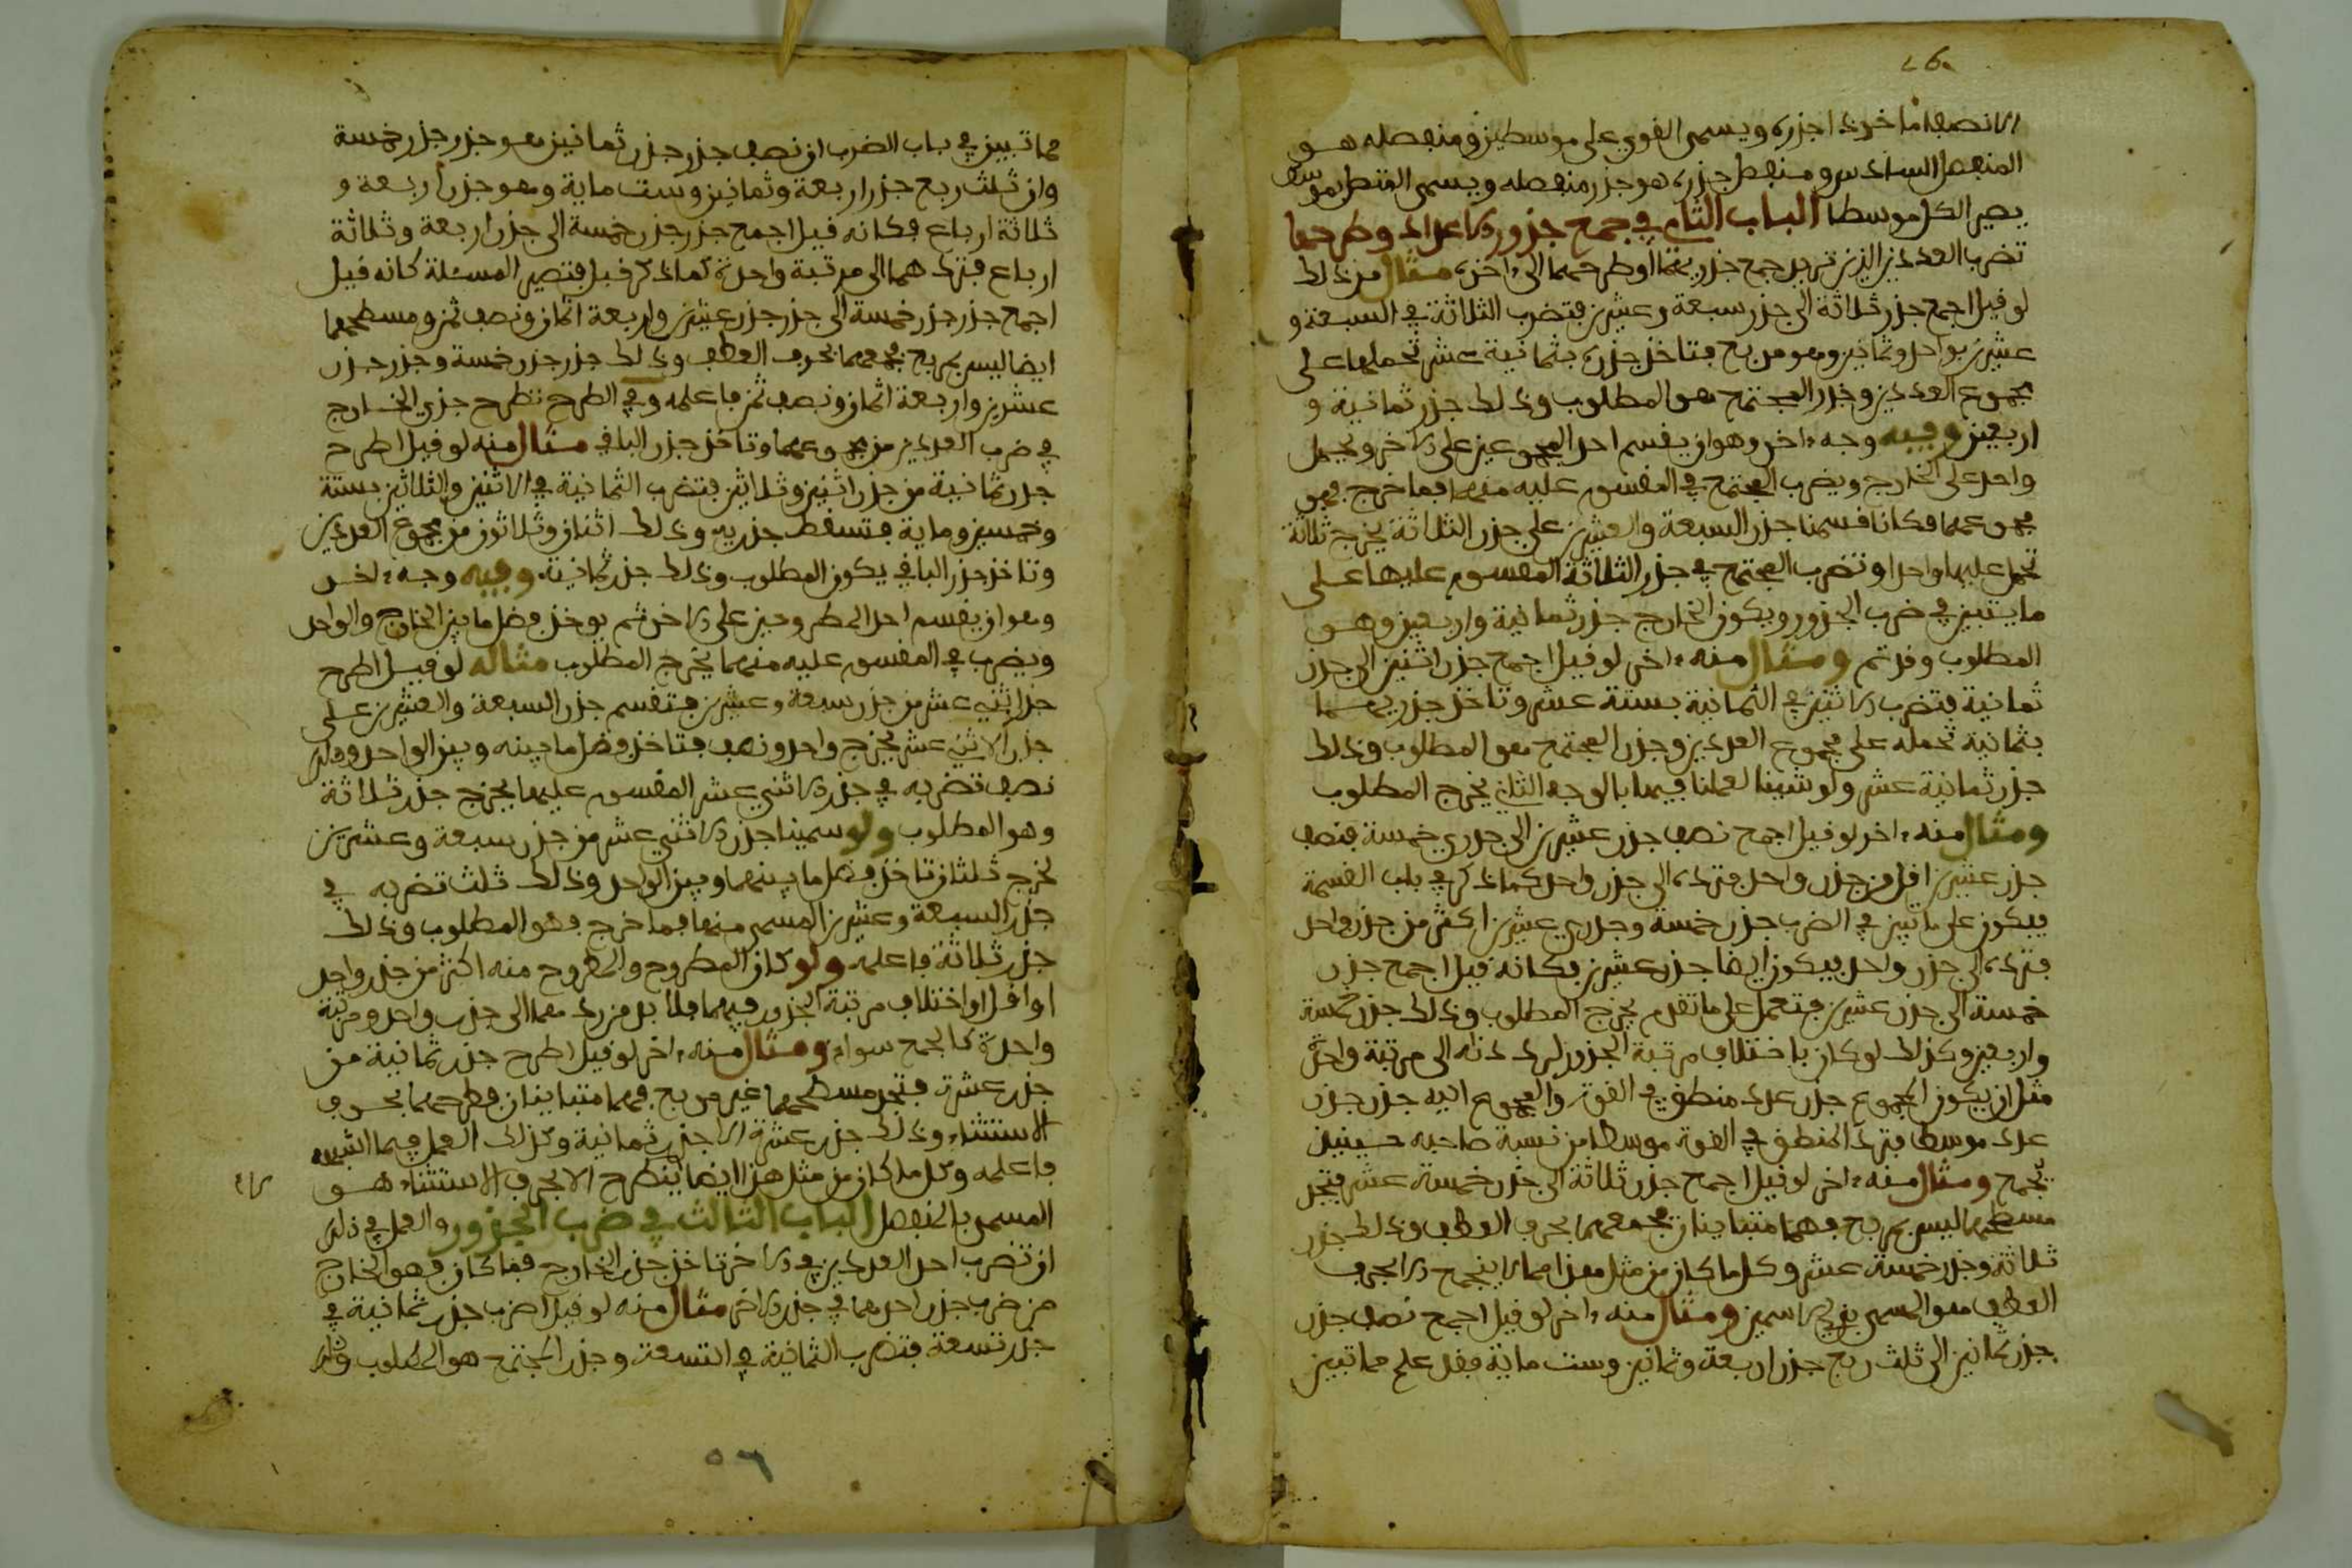 الا نصف ما خرذ اجزره ويسمى القوي على موسطين ومنفصله هو
المنفصل السادس ومنفصل جزره هو جزر منفصله ويسمى المتصل بموسط
يصير الكل موسطا الباب الثاني في جمع جذور الاعداد وطرحها
تضرب العددين الذين تريد جمع جذريهما او طرحهما الى اخره مثال من ذلك
لو قيل اجمع جذر ثلاثة الى جذر سبعة وعشرين فتضرب الثلاثة في السبعة و
عشرين بواحد وثمانين وهو مربع فتاخذ جذريه بثمانية عشر تحملها على
مجموع العددين وجذر المجتمع هو المطلوب وذلك جذر ثمانية و
اربعين وفيه وجه اخر وهو ان يقسم احد المجموعين على الاخر ويحمل
واحد على الخارج ويضرب المجتمع في المقسوم عليه منهما فما خرج فهو
مجموعهما فكانا قسمنا جذر السبعة والعشرين على جذر الثلاثة يخرج ثلاثة
تحمل عليها واحدا وتضرب المجتمع في جذر الثلاثة المقسوم عليها على
ما يتبين في ضرب الجذور ويكون الخارج جذر ثمانية واربعين وهو
المطلوب وقد تم ومثال منه اخر لو قيل اجمع جذر اثنين الى جذر
ثمانية فتضرب الاثنين في الثمانية بستة عشر وتاخذ جذريهما
بثمانية تحمله على مجموع العددين وجذر المجتمع هو المطلوب وذلك
جذر ثمانية عشر ولو شينا لعملنا فيها بالوجه الثاني يخرج المطلوب
ومثال منه اخر لو قيل اجمع نصف جذر عشرين الى جذري خمسة فنصف
جذر عشرين اقل من جذر واحد فترده الى جذر واحد كما ذكر في باب القسمة
فيكون على ما تبين في الضرب جذر خمسة وجذري عشرين اكثر من جذر واحد
فترده الى جذر واحد فيكون ايضا جذر عشرين فكانه قيل اجمع جذر
خمسة الى جذر عشرين فتعمل على ما تقدم يخرج المطلوب وذلك جذر خمسة
واربعين وكذلك لو كان باختلاف مرتبة الجذور لرددناه الى مرتبة واحدة
مثل ان يكون المجموع جذر عدد منطق في القوة والمجموع اليه جذر جذر
عدد موسط فترد المنطق في القوة موسطا من نسبة صاحبه حينيذ
تجمع ومثال منه اخر لو قيل اجمع جذر ثلاثة الى جذر خمسة عشر فتجد
مسطحهما ليس بمربع فهما متباينان فجمعهما بحرف العطف وذلك جذر
ثلاثة وجذر خمسة عشر وكل ما كان من مثل هذا مما لا ينجمع الا بحرف
العطف هو المسمى بذي الاسمين ومثال منه اخر لو قيل اجمع نصف جذر
جذر ثمانين الى ثلث ربع جذر اربعة وثمانين وست ماية فقد علم مما تبين
مما تبين في باب الضرب ان نصف جذر جذر ثمانين هو جذر جذر خمسة
وان ثلث ربع جذر اربعة وثمانين وست ماية وهو جذر اربعة و
ثلاثة ارباع فكانه قيل اجمع جذر جذر خمسة الى جذر اربعة وثلاثة
ارباع فتردهما الى مرتبة واحدة كما ذكر قبل فتصير المسئلة كانه قيل
اجمع جذر جذر خمسة الى جذر جذر عشرين واربعة اثمان ونصف ثمن ومسطحهما
ايضا ليس بمربع فجمعهما بحرف العطف وذلك جذر جذر خمسة وجذر جذر
عشرين واربعة اثمان ونصف ثمن فاعلمه وفي الطرح تطرح جذري الخارج
في ضرب العددين من مجموعهما وتاخذ جذر الباقي مثال منه لو قيل اطرح
جذر ثمانية من جذر اثنين وثلاثين فتضرب الثمانية في الاثنين والثلاثين بستة
وخمسين وماية فتسقط جذريه وذلك اثنان وثلاثون من مجموع العددين
وتاخذ جذر الباقي يكون المطلوب وذلك جذر ثمانية وفيه وجه اخر
وهو ان يقسم احد المطروحين على الاخر ثم يوخذ فضل ما بين الخارج والواحد
ويضرب في المقسوم عليه منهما يخرج المطلوب مثاله لو قيل اطرح
جذر اثني عشر من جذر سبعة وعشرين فتقسم جذر السبعة والعشرين على
جذر الاثني عشر يخرج واحد ونصف فتاخذ فضل ما بينه وبين الواحد وذلك
نصف تضربه في جذر الاثني عشر المقسوم عليها يخرج جذر ثلاثة
وهو المطلوب ولو سمينا جذر الاثني عشر من جذر سبعة وعشرين
لخرج ثلثان تاخذ فضل ما بينهما وبين الواحد وذلك ثلث تضربه في
جذر السبعة وعشرين المسمى منها فما خرج فهو المطلوب وذلك
جذر ثلاثة فاعلمه ولو كان المطروح والمطروح منه اكثر من جذر واحد
او اقل او اختلاف مرتبة الجذور فيهما فلا بد من ردهما الى جذر واحد ومرتبة
واحدة كالجمع سواء ومثال منه اخر لو قيل اطرح جذر ثمانية من
جذر عشرة فتجد مسطحهما غير مربع فهما متباينان فطرحهما بحرف
الاستثناء وذلك جذر عشرة الا جذر ثمانية وكذلك العمل فيما اشبهه
فاعلمه وكل ما كان من مثل هذا ايضا ينطرح الا بحرف الاستثناء هو
المسمى بالمنفصل الباب الثالث في ضرب الجذور والعمل في ذلك
ان تضرب احد العددين في الاخر تاخذ جذر الخارج فما كان فهو الخارج
من ضرب جذر احدهما في جذر الاخر مثال منه لو قيل اضرب جذر ثمانية في
جذر تسعة فتضرب الثمانية في التسعة وجذر المجتمع هو المطلوب وذلك